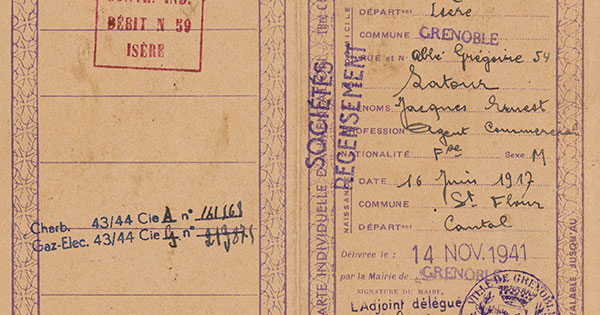 CONTR. IND.
DÉBIT N 59
ISÈRE
Charb. 43/44 Cie A n° 161168
Gaz-Elec. 43/44 Cie G n°
SOCIÉTÉS
RECENSEMENT
CARTE INDIVIDUELLE D
DOMICILE
DÉPART^T Isère
COMMUNE GRENOBLE
RUE et N° Abbé Grégoire 54
Latour
PRÉNOMS Jacques Ernest
PROFESSION Agent Commercial
NATIONALITÉ Fse Sexe M
NAISSANCE
DATE 16 Juin 1917
COMMUNE St Flour
DÉPART^T Cantal
Délivrée le : 14 NOV. 1941
par la Mairie de GRENOBLE
SIGNATURE DU MAIRE,
L'Adjoint délégué
VILLE DE GRENOBLE
VALABLE JUSQU'AU